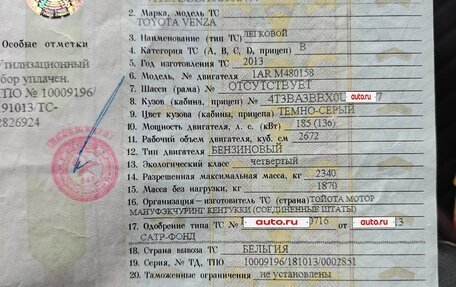 2. Марка, модель ТС
TOYOTA VENZA
3. Наименование (тип ТС) ЛЕГКОВОЙ
4. Категория ТС (A, B, C, D, прицеп) B
5. Год изготовления ТС 2013
6. Модель, № двигателя 1AR M480158
7. Шасси (рама) № ОТСУТСТВУЕТ
8. Кузов (кабина, прицеп) № 4T3BA3BBX0U auto.ru 7
9. Цвет кузова (кабины, прицепа) ТЕМНО-СЕРЫЙ
10. Мощность двигателя, л. с. (кВт) 185 (136)
11. Рабочий объем двигателя, куб. см 2672
12. Тип двигателя БЕНЗИНОВЫЙ
13. Экологический класс четвертый
14. Разрешенная максимальная масса, кг 2340
15. Масса без нагрузки, кг 1870
16. Организация-изготовитель ТС (страна) ТОЙОТА МОТОР
МАНУФЭКЧУРИНГ КЕНТУККИ (СОЕДИНЕННЫЕ ШТАТЫ)
17. Одобрение типа ТС № auto.ru 0716 от auto.ru .13
САТР-ФОНД
18. Страна вывоза ТС БЕЛЬГИЯ
19. Серия, № ТД, ТПО 10009196/181013/0002851
20. Таможенные ограничения не установлены
Особые отметки
Утилизационный
сбор уплачен.
ТПО № 10009196/
191013/ТС-
2826924